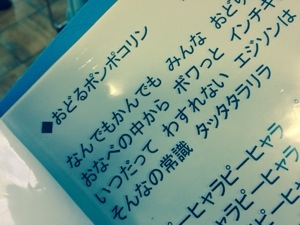 ◆おどるポンポコリン
なんでもかんでも みんな おど
おなべの中から ボワっと インチキ
いつだって わすれない エジソンは
そんなの常識 タッタタラリラ
ピーヒャラピーヒャラ
ピーヒャラ